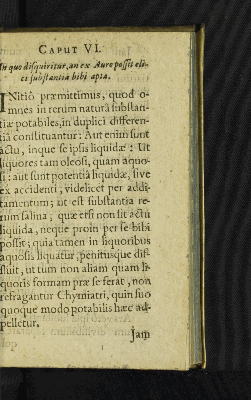 CAPUT VI.
In quo disquiritur, an ex Auro possit eli-
ci substantia bibi apta.
INitiò præmittimus, quod o-
mnes in rerum naturâ substan-
tiæ potabiles, in duplici differen-
tiâ constituantur: Aut enim sunt
actu, inque se ipsis liquidæ: Ut
liquores tam oleosi, quam aquo-
si: aut sunt potentiâ liquidæ, sive
ex accidenti; videlicet per addi-
tamentum; ut est substantia re-
rum salina; quæ etsi non sit actu
liquida, neque proin per se bibi
possit; quia tamen in liquoribus
aquosis liquatur, penitusque dif-
fluit, ut tum non aliam quam li-
quoris formam præ se ferat, non
refragantur Chymiatri, quin suo
quoque modo potabilis hæc ad-
pelletur.
Jam